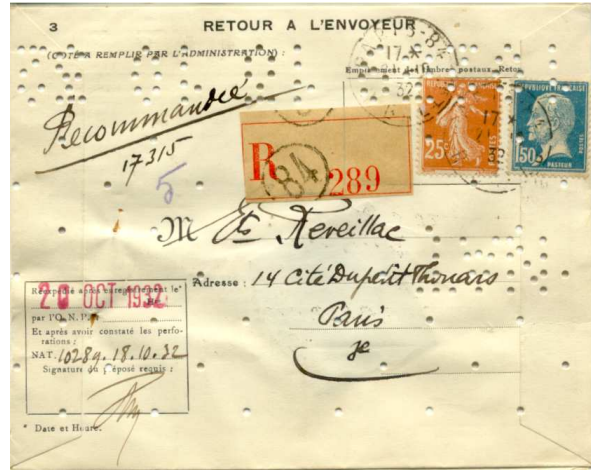 3 RETOUR A L'ENVOYEUR
(COTÉ A REMPLIR PAR L'ADMINISTRATION) :
Emplacement des timbres postaux Retour
Recommandé
17315
5
PARIS-84
17
32
REPUBLIQUE FRANÇAISE
25c
POSTES
REPUBLIQUE FRANÇAISE
1F50
POSTES
PASTEUR
17
32
R 84 289
M Reveillac
Adresse : 14 Cité Dupetit Thouars
Paris
3e
Réexpédié après enregistrement le*
20 OCT 1932
par l'O. N. I.
Et après avoir constaté les perfo-
rations :
NAT. 10289. 18.10.32
Signature du préposé requis :
* Date et Heure.